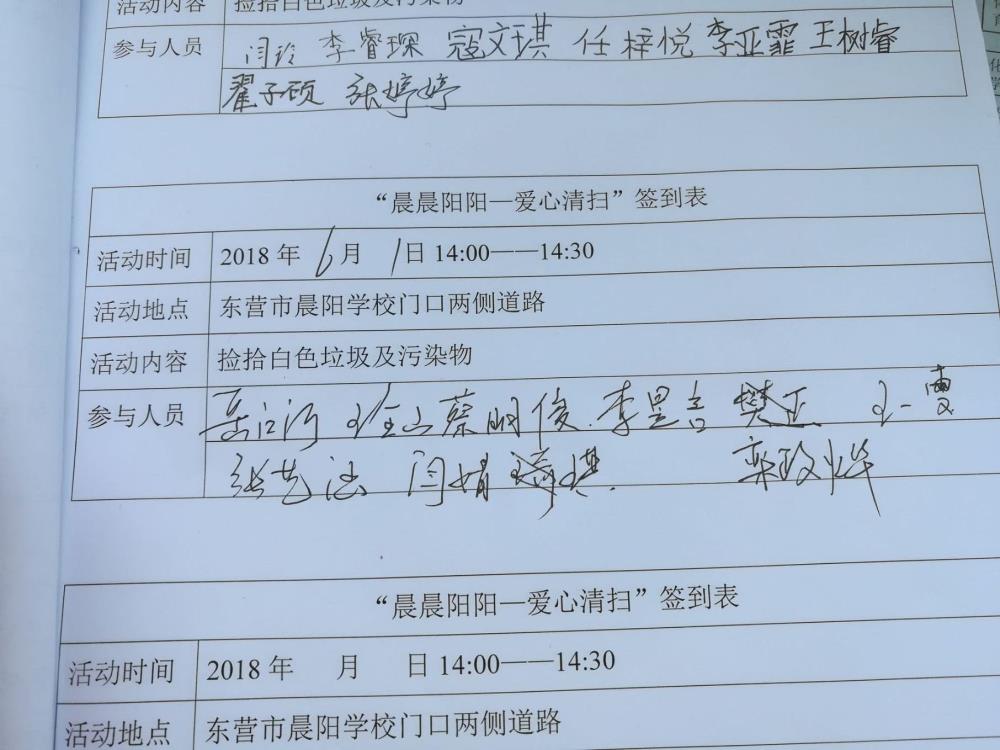 活动内容 捡拾白色垃圾及污染物
参与人员 闫玲 李睿琛 寇文琪 任梓悦 李亚霏 王树睿
翟子硕 张婷婷
“晨晨阳阳—爱心清扫”签到表
活动时间 2018 年 6 月 1 日 14:00——14:30
活动地点 东营市晨阳学校门口两侧道路
活动内容 捡拾白色垃圾及污染物
参与人员 蔡明俊 李昱吉 樊正 王一雯
张艺涵 闫婧 栾政烨
“晨晨阳阳—爱心清扫”签到表
活动时间 2018 年 月 日 14:00——14:30
活动地点 东营市晨阳学校门口两侧道路